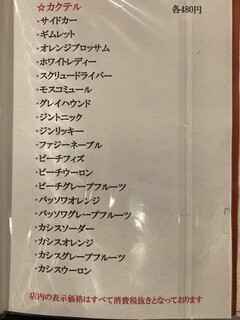 ☆カクテル 各480円
・サイドカー
・ギムレット
・オレンジブロッサム
・ホワイトレディー
・スクリュードライバー
・モスコミュール
・グレイハウンド
・ジントニック
・ジンリッキー
・ファジーネーブル
・ピーチフィズ
・ピーチウーロン
・ピーチグレープフルーツ
・パッソワオレンジ
・パッソワグレープフルーツ
・カシスソーダー
・カシスオレンジ
・カシスグレープフルーツ
・カシスウーロン
店内の表示価格はすべて消費税抜きとなっております